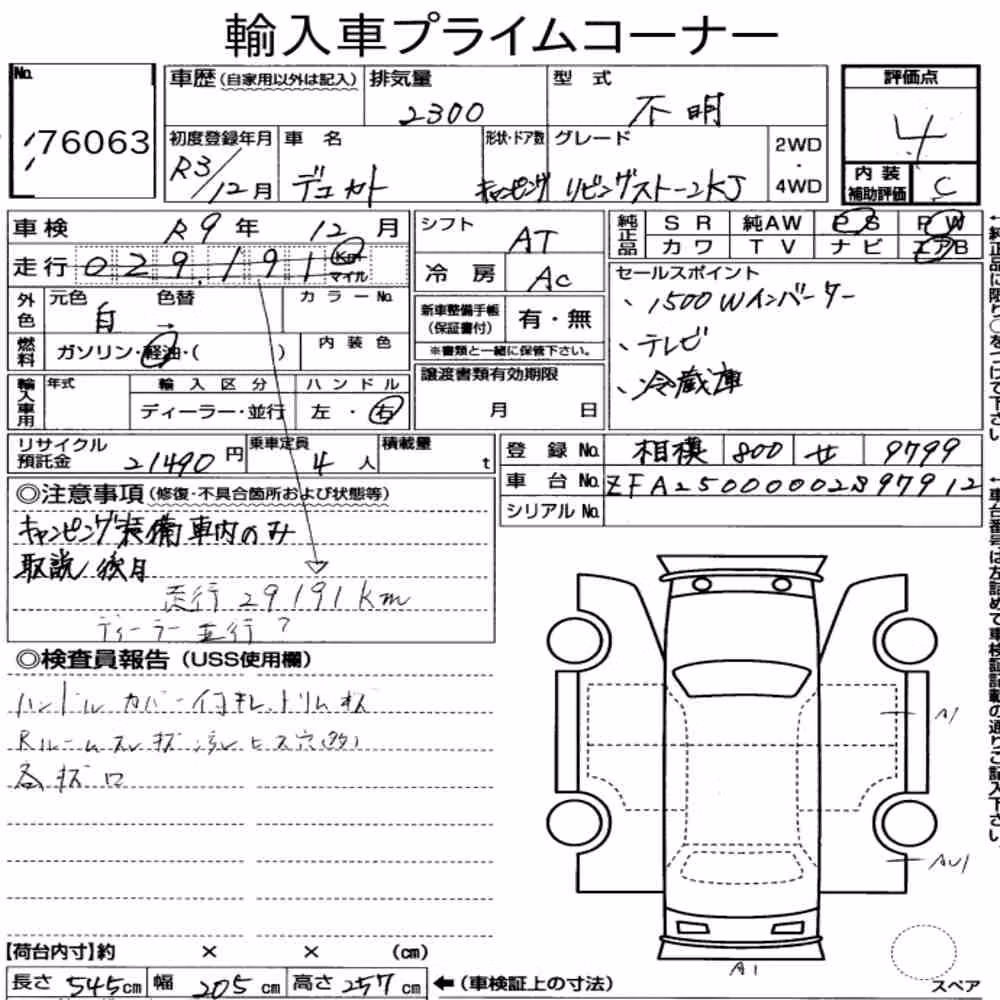 輸入車プライムコーナー
No. 76063
車歴 (自家用以外は記入) 排気量 2300 型式 不明
評価点 4
内装補助評価 C
初度登録年月 R3/12月 車名 デュカト 形状・ドア数 キャンピング グレード リビングストーン2KJ 2WD・4WD
車検 R9年 12月
走行 029,191 Km マイル
シフト AT
冷房 AC
純正品 SR 純AW PS PW
カワ TV ナビ エアB
外色 元色 白 色替 → カラーNo.
燃料 ガソリン・軽油・( ) 内装色
新車整備手帳 (保証書付) 有・無
※書類と一緒に保管下さい。
セールスポイント
、1500Wインバーター
、テレビ
、冷蔵庫
輸入車用 年式 輸入区分 ハンドル
ディーラー・並行 左・右
譲渡書類有効期限
月 日
リサイクル預託金 21490円 乗車定員 4人 積載量 t
登録No. 相模 800 せ 9799
車台No. ZFA25000002S97912
シリアルNo.
◎注意事項 (修復・不具合箇所および状態等)
キャンピング装備車内のみ
取説後日
走行 29191km
ディーラー 並行?
◎検査員報告 (USS使用欄)
ハンドルカバー付
Rルームスレ
A1
AU1
A1
【荷台内寸】約 × × (cm)
長さ 545cm 幅 205cm 高さ 257cm ←(車検証上の寸法)
スペア
←純正品に限り○をつけて下さい。
←車台番号は左詰めで車検証記載の通りご記入下さい。